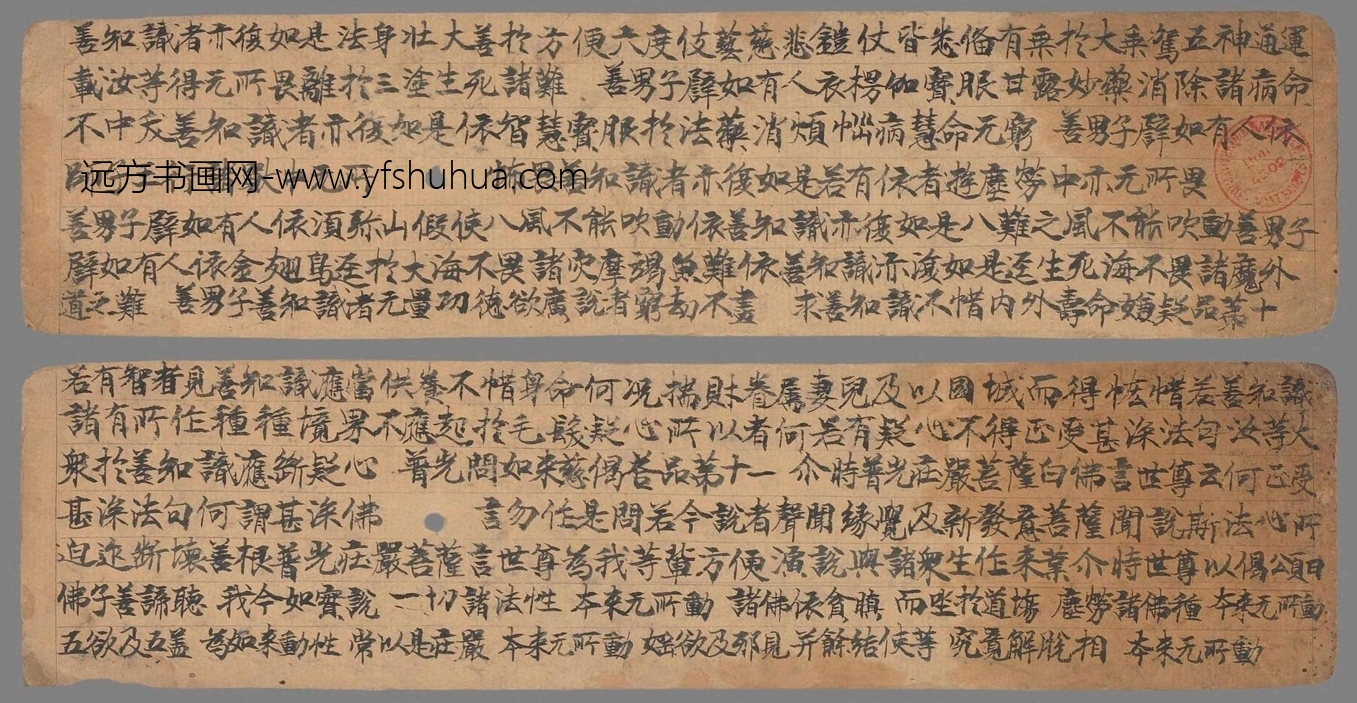 善知識者亦復如是法身壯大善於方便六度伎藝慈悲鎧仗皆悉俻有乗於大乗駕五神通運
載汝等得元所畏離於三塗生死諸難 善男子譬如有人衣楞伽寳服甘露妙藥消除諸病命
不中夭善知識者亦復如是依智慧寳服於法藥消煩惱病慧命无窮 善男子譬如有人依
远方书画网-www.yfshuhua.com
善知識者亦復如是若有依者遊塵勞中亦元所畏
善男子譬如有人依湏弥山假使八風不能吹動依善知識亦復如是八難之風不能吹動善男子
譬如有人依金翅鳥逕於大海不畏諸突摩竭魚難依善知識亦復如是逕生死海不畏諸魔外
道之難 善男子善知識者元量功徳欲廣說者窮劫不盡 求善知識不惜内外壽命嫌疑品苐十
若有智者見善知識應當供養不惜身命何况揣財眷屬妻兒及以國城而得恡惜若善知識
諸有所作種種境界不應起於毛髮疑心所以者何若有疑心不得正受甚深法句汝等大
衆於善知識應断疑心 普光問如来慈偈荅品苐十一 尒時普光莊嚴菩薩白佛言世尊云何正受
甚深法句何謂甚深佛 言勿任是問若今說者聲聞緣覺及新發意菩薩聞說斯法心所
迫迮断壊善根普光莊嚴菩薩言世尊為我等輩方便演說與諸衆生作来業尒時世尊以偈頌曰
佛子善諦聽 我今如實說 一切諸法性 本来元所動 諸佛依貪瞋 而坐於道場 塵勞諸佛種 本来元所動
五欲及五盖 為如来動性 常以是莊嚴 本来元所動 婬欲及邪見 并餘結使等 究竟解脫相 本来元所動